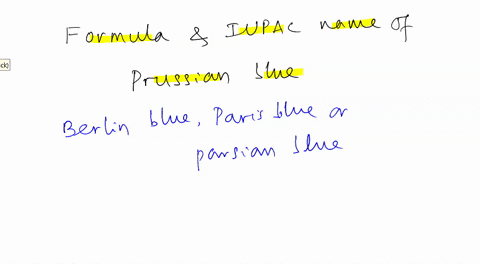 Formula & IUPAC name of
ck)
Prussian blue
Berlin blue, Paris blue or
parsian blue